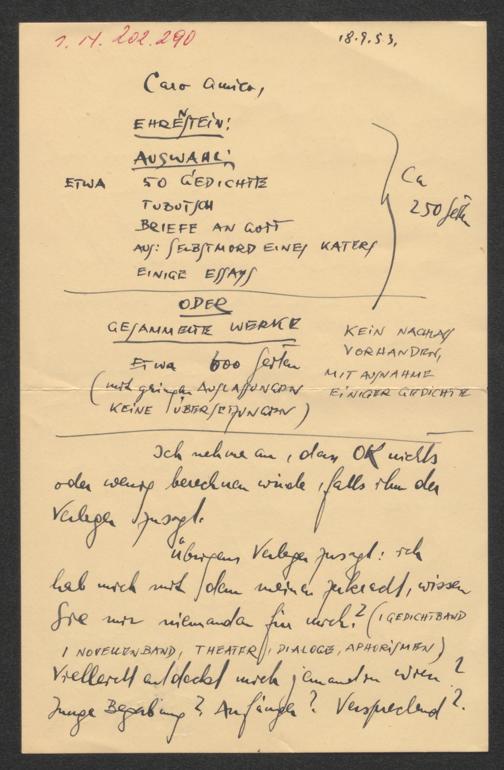 1. H. 202.290
18.9.53,
Caro amico,
EHRENSTEIN:
AUSWAHL:
ETWA 50 GEDICHTE
TUBUTSCH
BRIEFE AN GOTT
AUS: SELBSTMORD EINES KATERS
EINIGE ESSAYS
Ca
250 Seiten
ODER
GESAMMELTE WERKE
Etwa 600 Seiten
(mit geringen AUSLASSUNGEN
KEINE ÜBERSETZUNGEN)
KEIN NACHLASS
VORHANDEN,
MIT AUSNAHME
EINIGER GEDICHTE
Ich nehme an, dass OK nichts
oder wenig berechnen würde, falls ihm der
Verleger zusagt.
Übrigens Verleger zusagt: ich
hab mich mit dem meinen zerkracht, wissen
Sie mir niemanden für mich? (1 GEDICHTBAND
1 NOVELLENBAND, THEATER, DIALOGE, APHORISMEN)
Vielleicht entdeckt mich jemand wieder?
Junge Begabung? Anfänger? Versprechend?